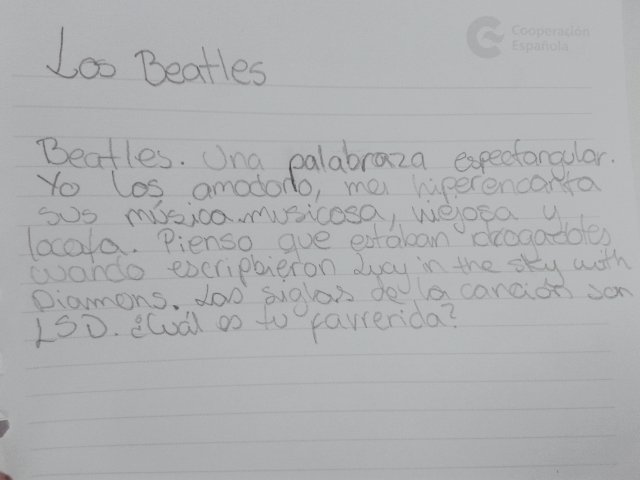 Cooperación
Española
Los Beatles
Beatles. Una palabraza espectangular.
Yo los amodoro, me hiperencanta
sus música musicosa, viejosa y
locata. Pienso que estaban drogadotes
cuando escripbieron Lucy in the sky with
Diamons. Las siglas de la canción son
LSD. ¿Cuál es tu favrerida?